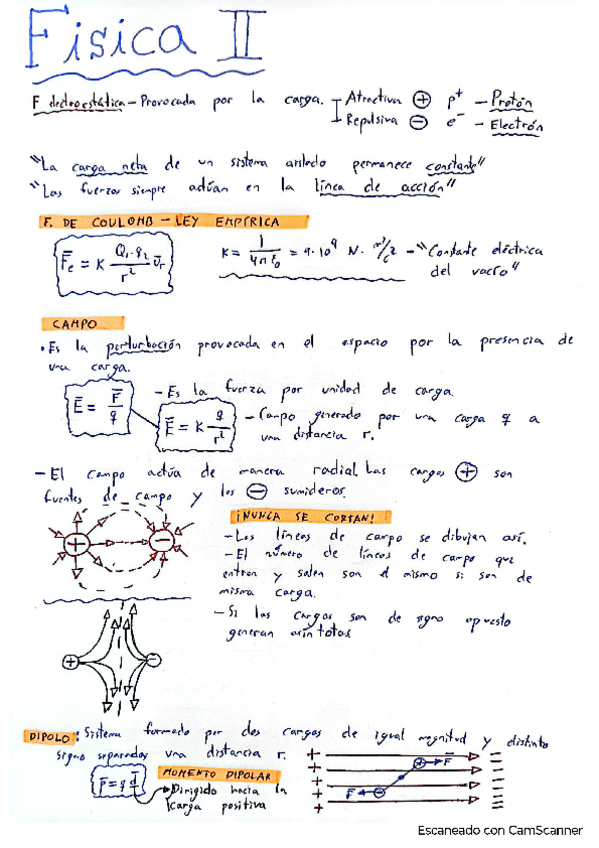 Física II
F electroestática – Provocada por la carga. Atractiva ⊕ p⁺ – Protón
Repulsiva ⊖ e⁻ – Electrón
"La carga neta de un sistema aislado permanece constante"
"Las fuerzas siempre actúan en la línea de acción"
F. DE COULOMB – LEY EMPÍRICA
F̄e = K Q₁·q₂/r² ūr
K = 1/4πε₀ = 9·10⁹ N·m²/c² – "Constante eléctrica
del vacío"
CAMPO
• Es la perturbación provocada en el espacio por la presencia de
una carga.
Ē = F̄/q
– Es la fuerza por unidad de carga.
Ē = K q/r²
– Campo generado por una carga q a
una distancia r.
– El campo actúa de manera radial. Las cargas ⊕ son
fuentes de campo y las ⊖ sumideros.
¡NUNCA SE CORTAN!
– Las líneas de campo se dibujan así.
– El número de líneas de campo que
entran y salen son el mismo si son de
misma carga.
– Si las cargas son de signo opuesto
generan asíntotas
+ −
+ −
DIPOLO: Sistema formado por dos cargas de igual magnitud y distinto
signo separadas una distancia r.
p̄ = q d̄
MOMENTO DIPOLAR
Dirigido hacia la
carga positiva
+ + F̄
F −
+
+
+
Escaneado con CamScanner